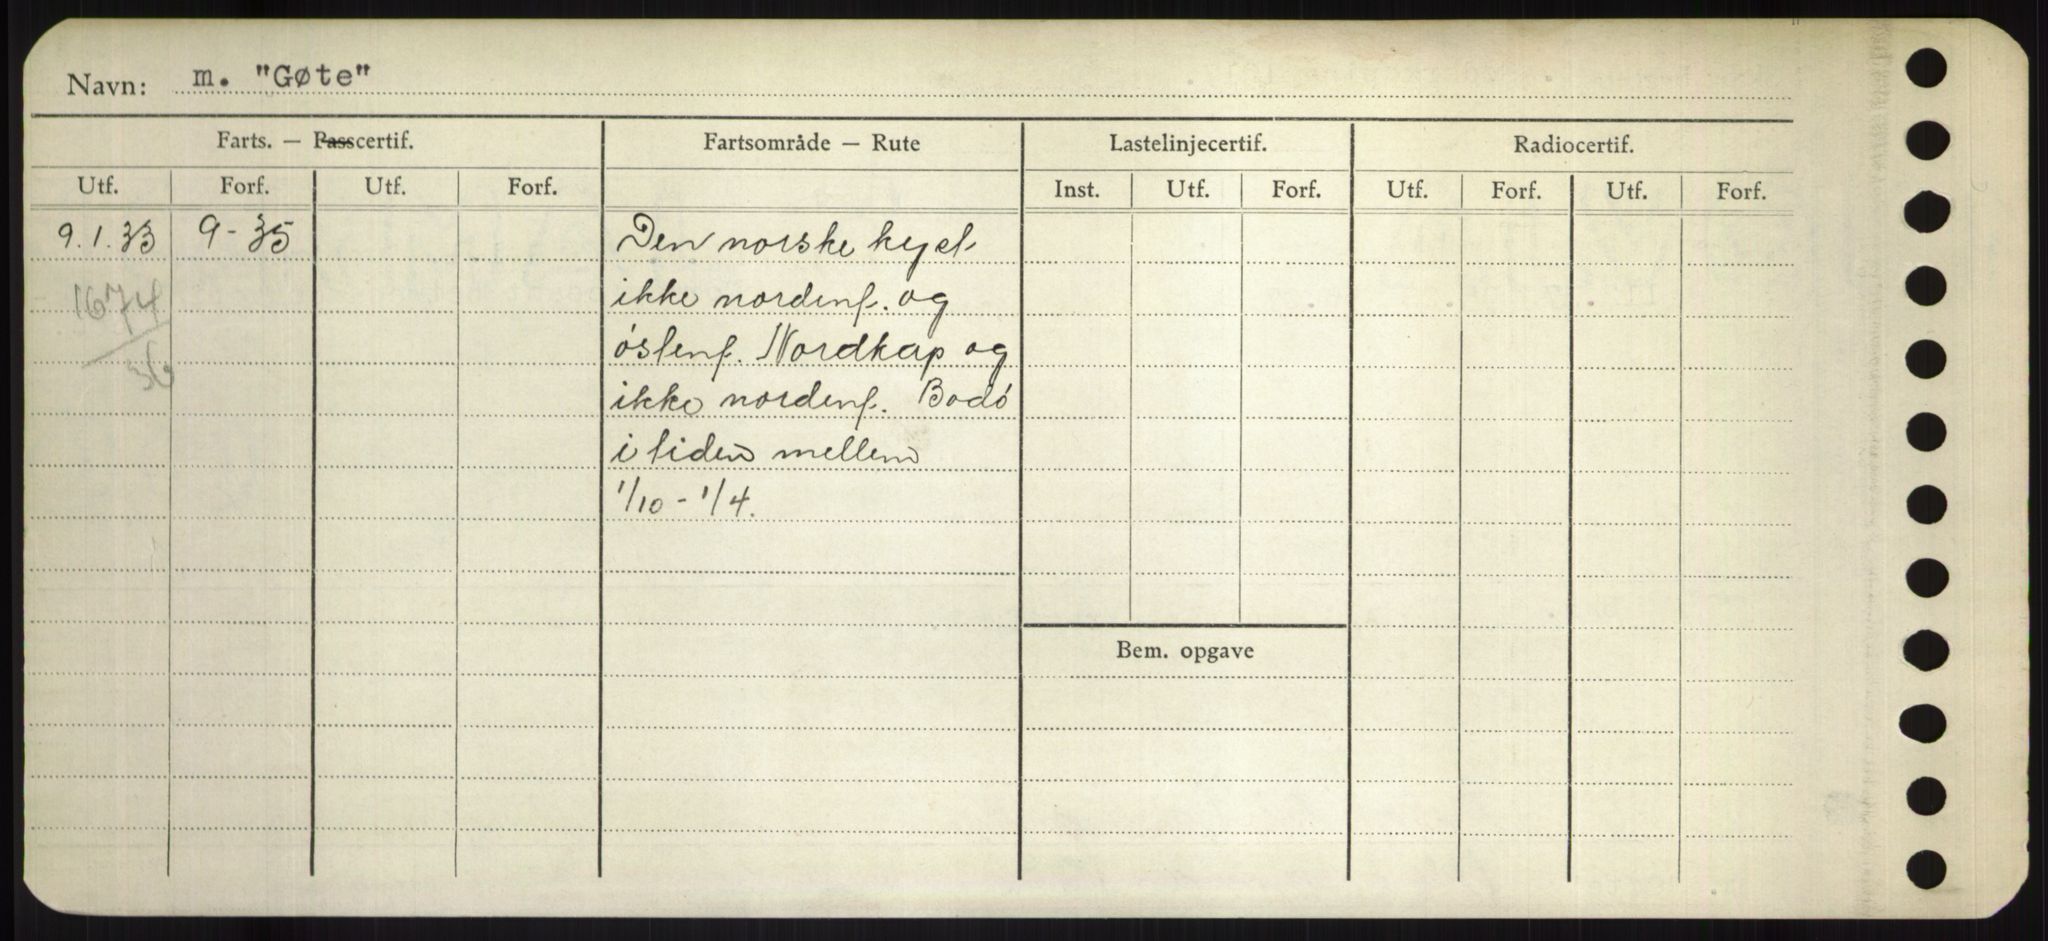 Navn: m. "Gøte"
Farts. — Passcertif. Fartsområde — Rute Lastelinjecertif. Radiocertif.
Utf. Forf. Utf. Forf. Inst. Utf. Forf. Utf. Forf. Utf. Forf.
9.1.33 9-35 Den norske kyst
ikke nordenf. og
1674
østenf. Nordkap og
36
ikke nordenf. Bodø
i tiden mellem
1/10 - 1/4.
Bem. opgave